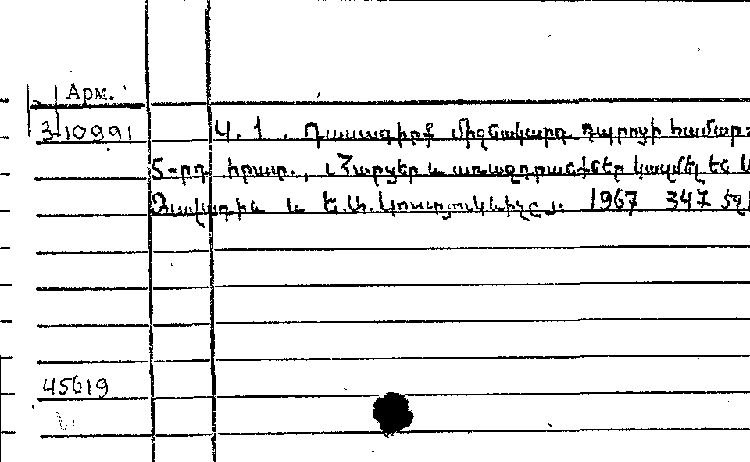 Арм.
3-10991
Կ. 1. Դասագիրք միջնակարգ դպրոցի համար
5-րդ հրատ., Հարցեր և առաջադրանքներ կազմել են
և Ե. Ա. 1967 347 էջ
45619